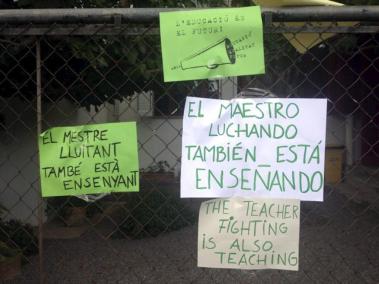 L'EDUCACIÓ ES
EL FUTUR!
EL MESTRE
LLUITANT
TAMBÉ ESTÀ
ENSENYANT
EL MAESTRO
LUCHANDO
TAMBIÉN ESTÁ
ENSEÑANDO
THE TEACHER
FIGHTING
IS ALSO
TEACHING